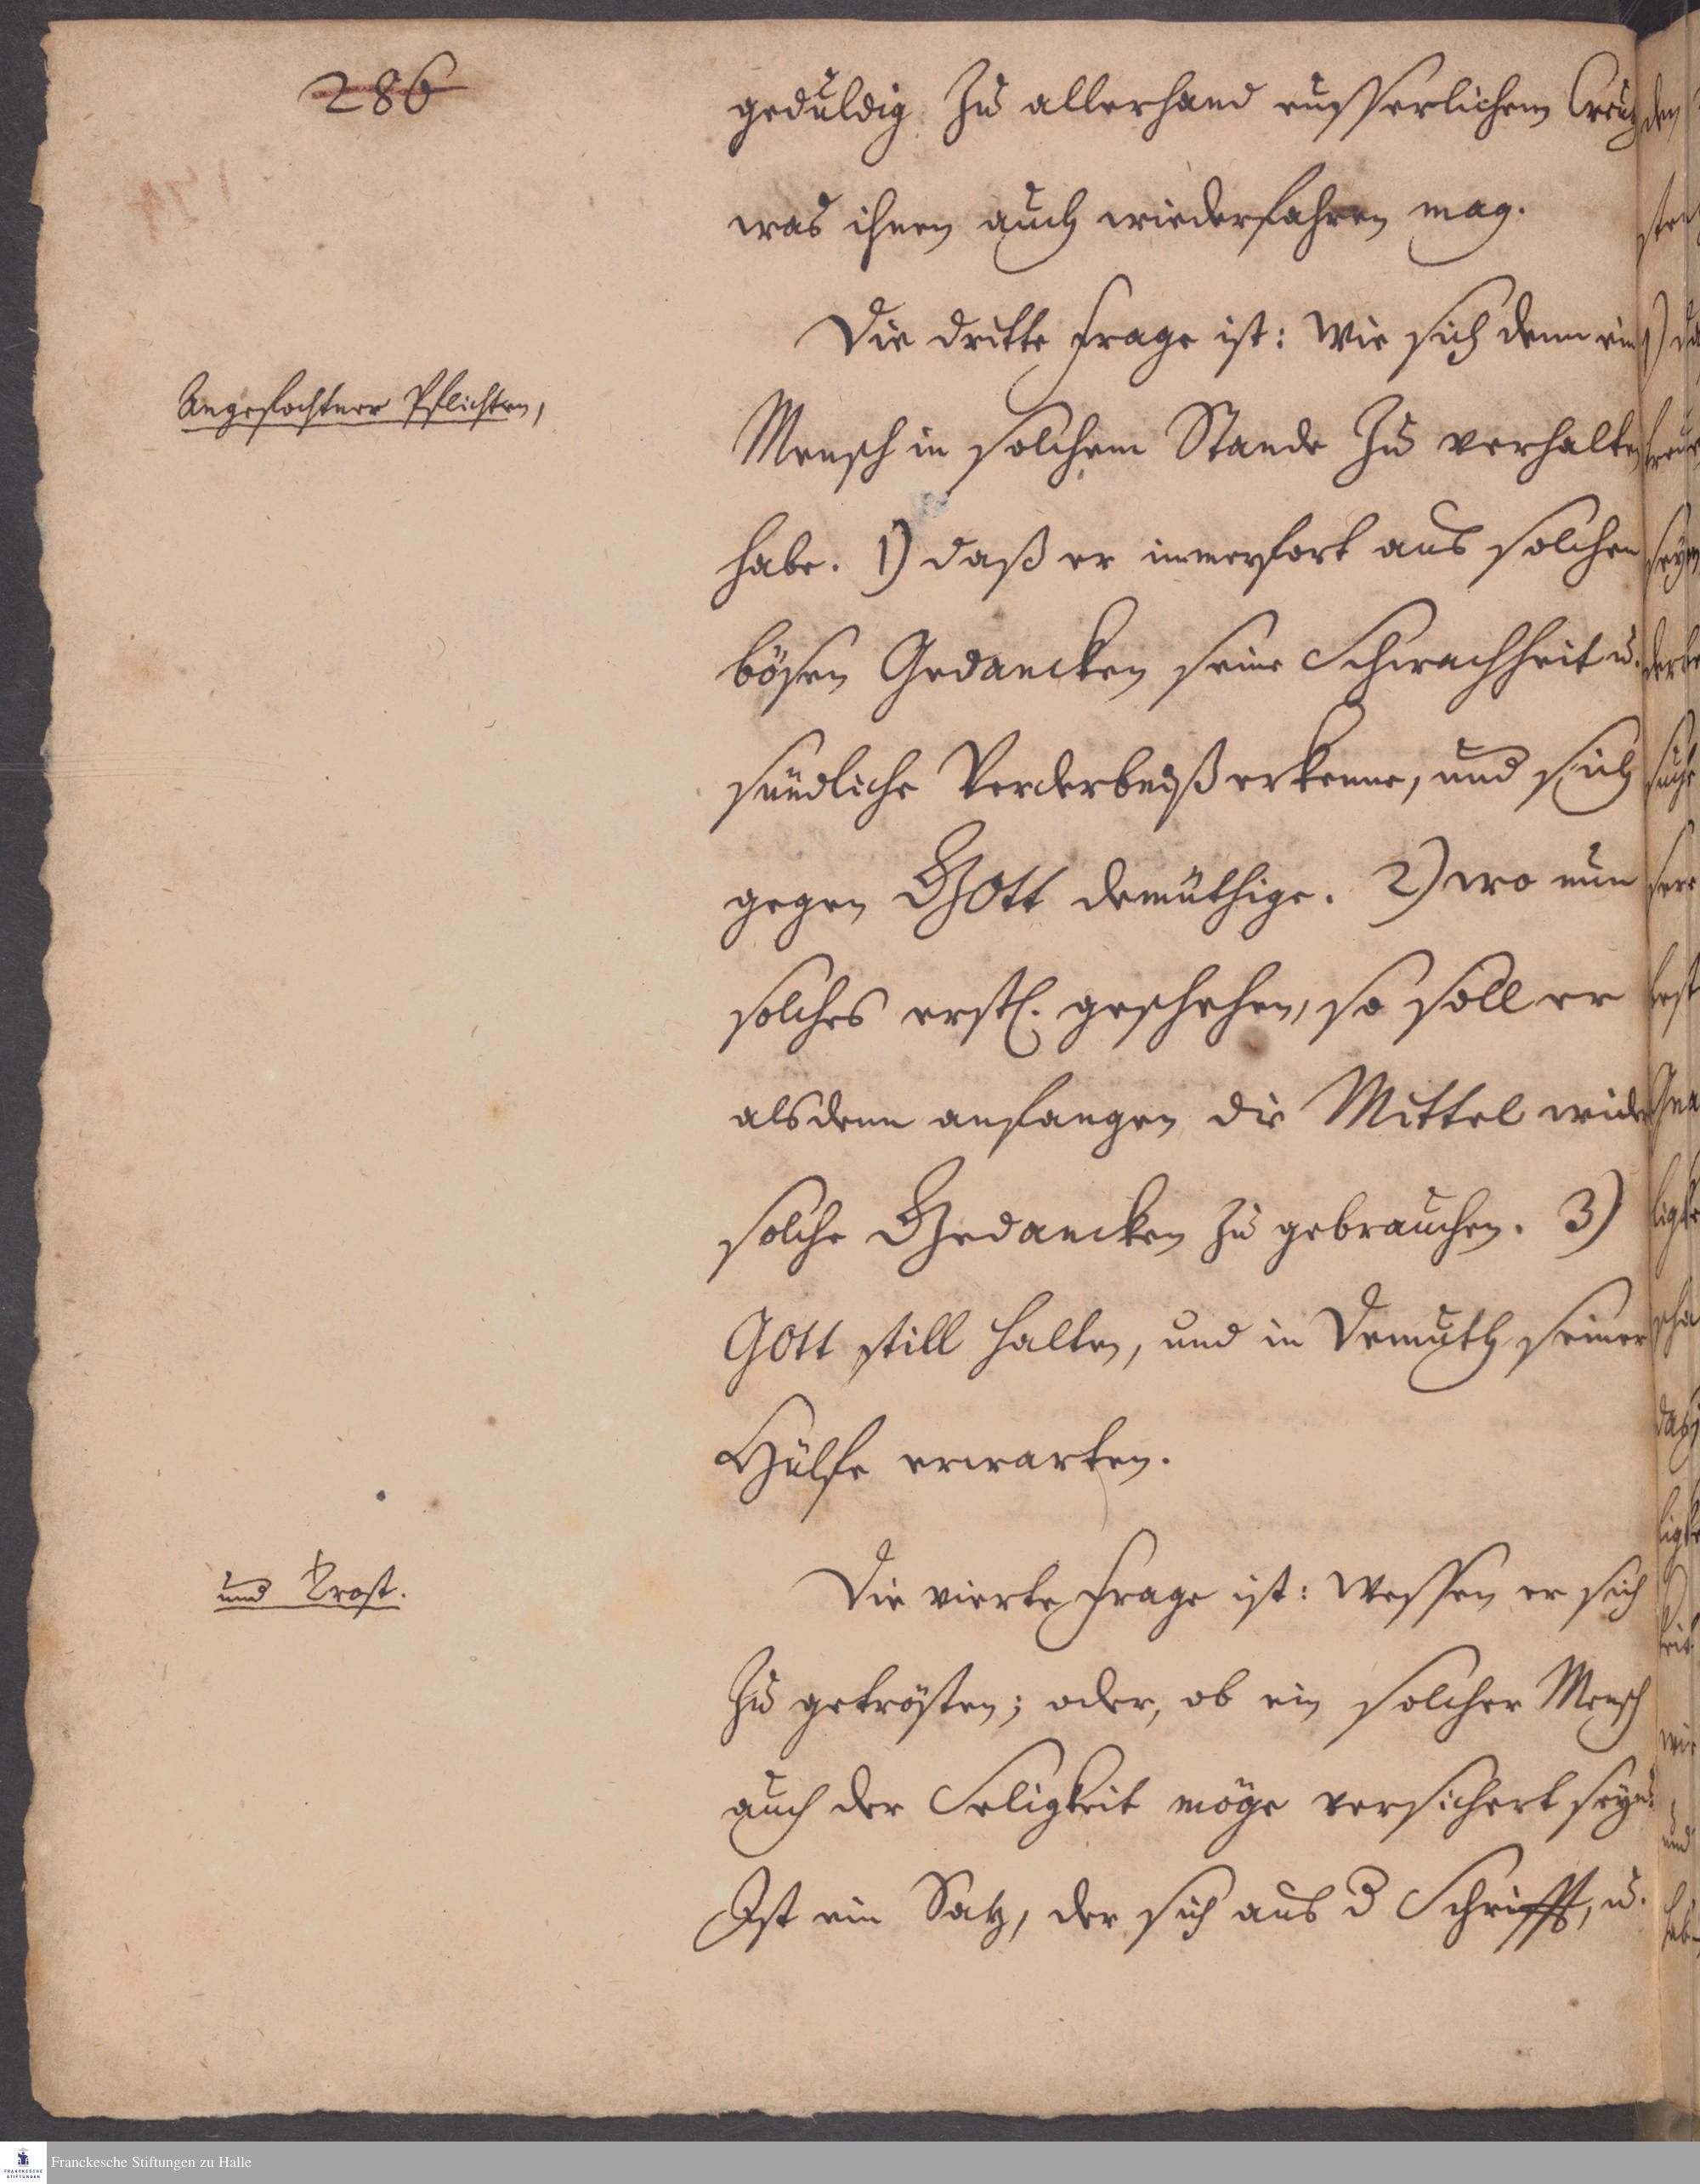 286
geduldig zu allerhand eusserlichem Creutz
was ihnen auch wiederfahren mag.
Die dritte Frage ist: Wie sich denn ein
Angefochtner Pflichten,
Mensch in solchem Stande zu verhalten
habe. 1) daß er immerfort aus solchen
bösen Gedancken seine Schwachheit u.
sündliche Verderbniß erkenne, und sich
gegen GOtt demüthige. 2) wo nun
solches erstl. geschehen, so soll er
alsdenn anfangen die Mittel wider
solche Gedancken zu gebrauchen. 3)
GOtt still halten, und in Demuth seiner
Hülfe erwarten.
und Trost.
Die vierte Frage ist: Wessen er sich
zu getrösten; oder, ob ein solcher Mensch
auch der Seligkeit möge versichert seyn?
Ist ein Satz, der sich aus d Schrifft, u.
Franckesche Stiftungen zu Halle